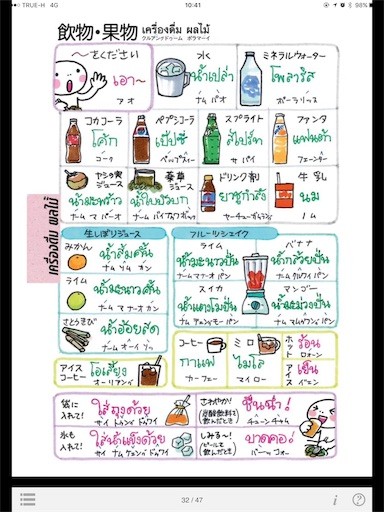 TRUE-H 4G
10:41
98%
飲物・果物
เครื่องดื่ม ผลไม้
クルアンドゥーム ポラマーイ
〜をください
เอา〜
アオ
水
น้ำเปล่า
ナム パオ
ミネラルウォーター
โพลาริส
ポーラリッス
コカコーラ
โค้ก
コーク
ペプシコーラ
เป๊ปซี่
ペップスィー
スプライト
สไปร์ท
サパイ
ファンタ
แฟนต้า
フェーンター
ヤシの実ジュース
น้ำมะพร้าว
ナム マパーオ
薬草ジュース
น้ำใบบัวบก
ナム バイブアボック
ドリンク剤
ยาชูกำลัง
ヤーチューガムラン
牛乳
นม
ノム
เครื่องดื่ม ผลไม้
生しぼりジュース
みかん
น้ำส้มคั้น
ナム ソム カン
ライム
น้ำมะนาวคั้น
ナム マナーオ カン
さとうきび
น้ำอ้อยสด
ナム オーイ ソッ
フルーツシェイク
ライム
น้ำมะนาวปั่น
ナーム マナーオ パン
バナナ
น้ำกล้วยปั่น
ナーム クルアイ パン
スイカ
น้ำแตงโมปั่น
ナーム テンモー パン
マンゴー
น้ำมะม่วงปั่น
ナーム マムアン パン
アイスコーヒー
โอเลี้ยง
オーリアング
コーヒー
กาแฟ
カーフェー
ミロ
ไมโล
マイロー
ホット
ร้อน
ロォーン
アイス
เย็น
イェン
袋に入れて!
ใส่ถุงด้วย
サイ トゥン ドゥワイ
さわやか!
(炭酸飲料で飲んだとき)
ชื่นฉ่ำ!
チューン チャム
氷も入れて!
ใส่น้ำแข็งด้วย
サイ ナムケェング ドゥワイ
しみる〜!
(ビールで飲んだとき)
บาดคอ!
バーッ コォー
32 / 47